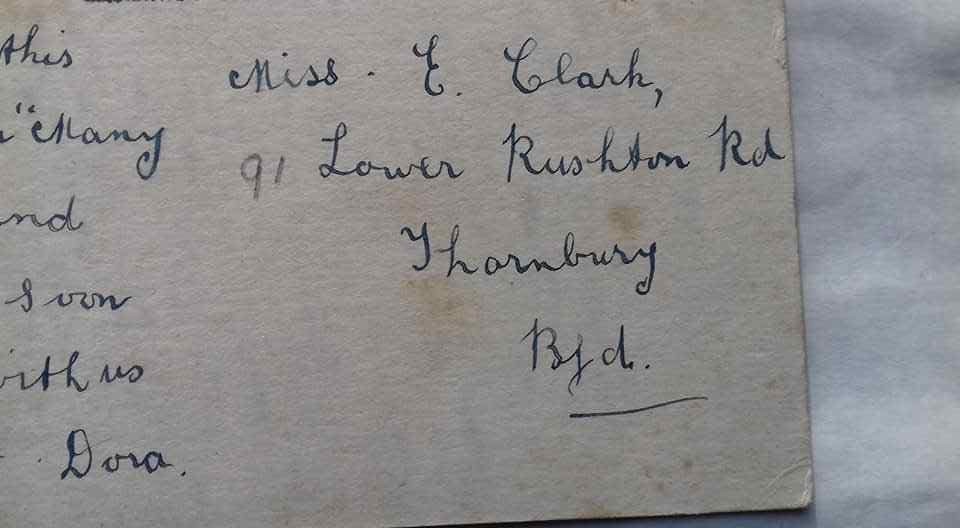 this
"Many
and
soon
with us
Dora.
Miss. E. Clark,
91 Lower Rushton Rd
Thornbury
Bfd.